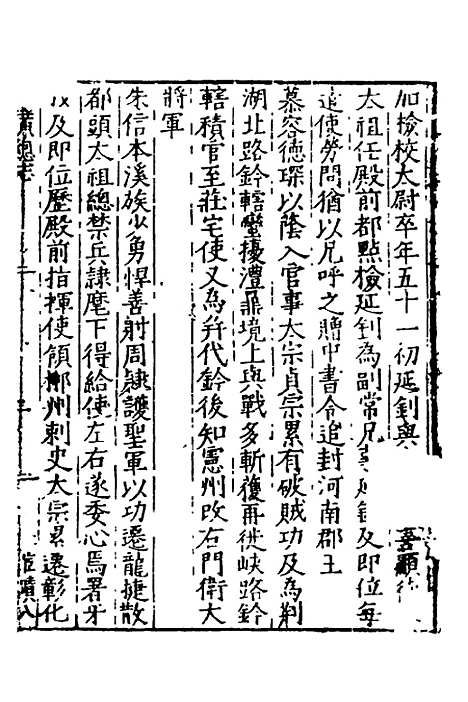 加檢校太尉卒年五十一初延釗與
太祖任殿前都㸃檢延釗為副常兄事延釗及即位每
遣使勞問猶以兄呼之贈中書令追封河南郡王
慕容德琛以䕃入官事太宗真宗累有破賊功及為荆
湖北路鈐轄蠻擾澧鼎境上與戰多斬復再徙峽路鈐
轄積官至莊宅使又為并代鈐後知憲州改右門衛大
將軍
朱信本溪族少勇悍善射周隷護聖軍以功遷龍捷散
都頭太祖總禁兵隷麾下得給使左右遂委心焉署牙
及即位歷殿前指揮使領郴州刺史太宗累遷彰化